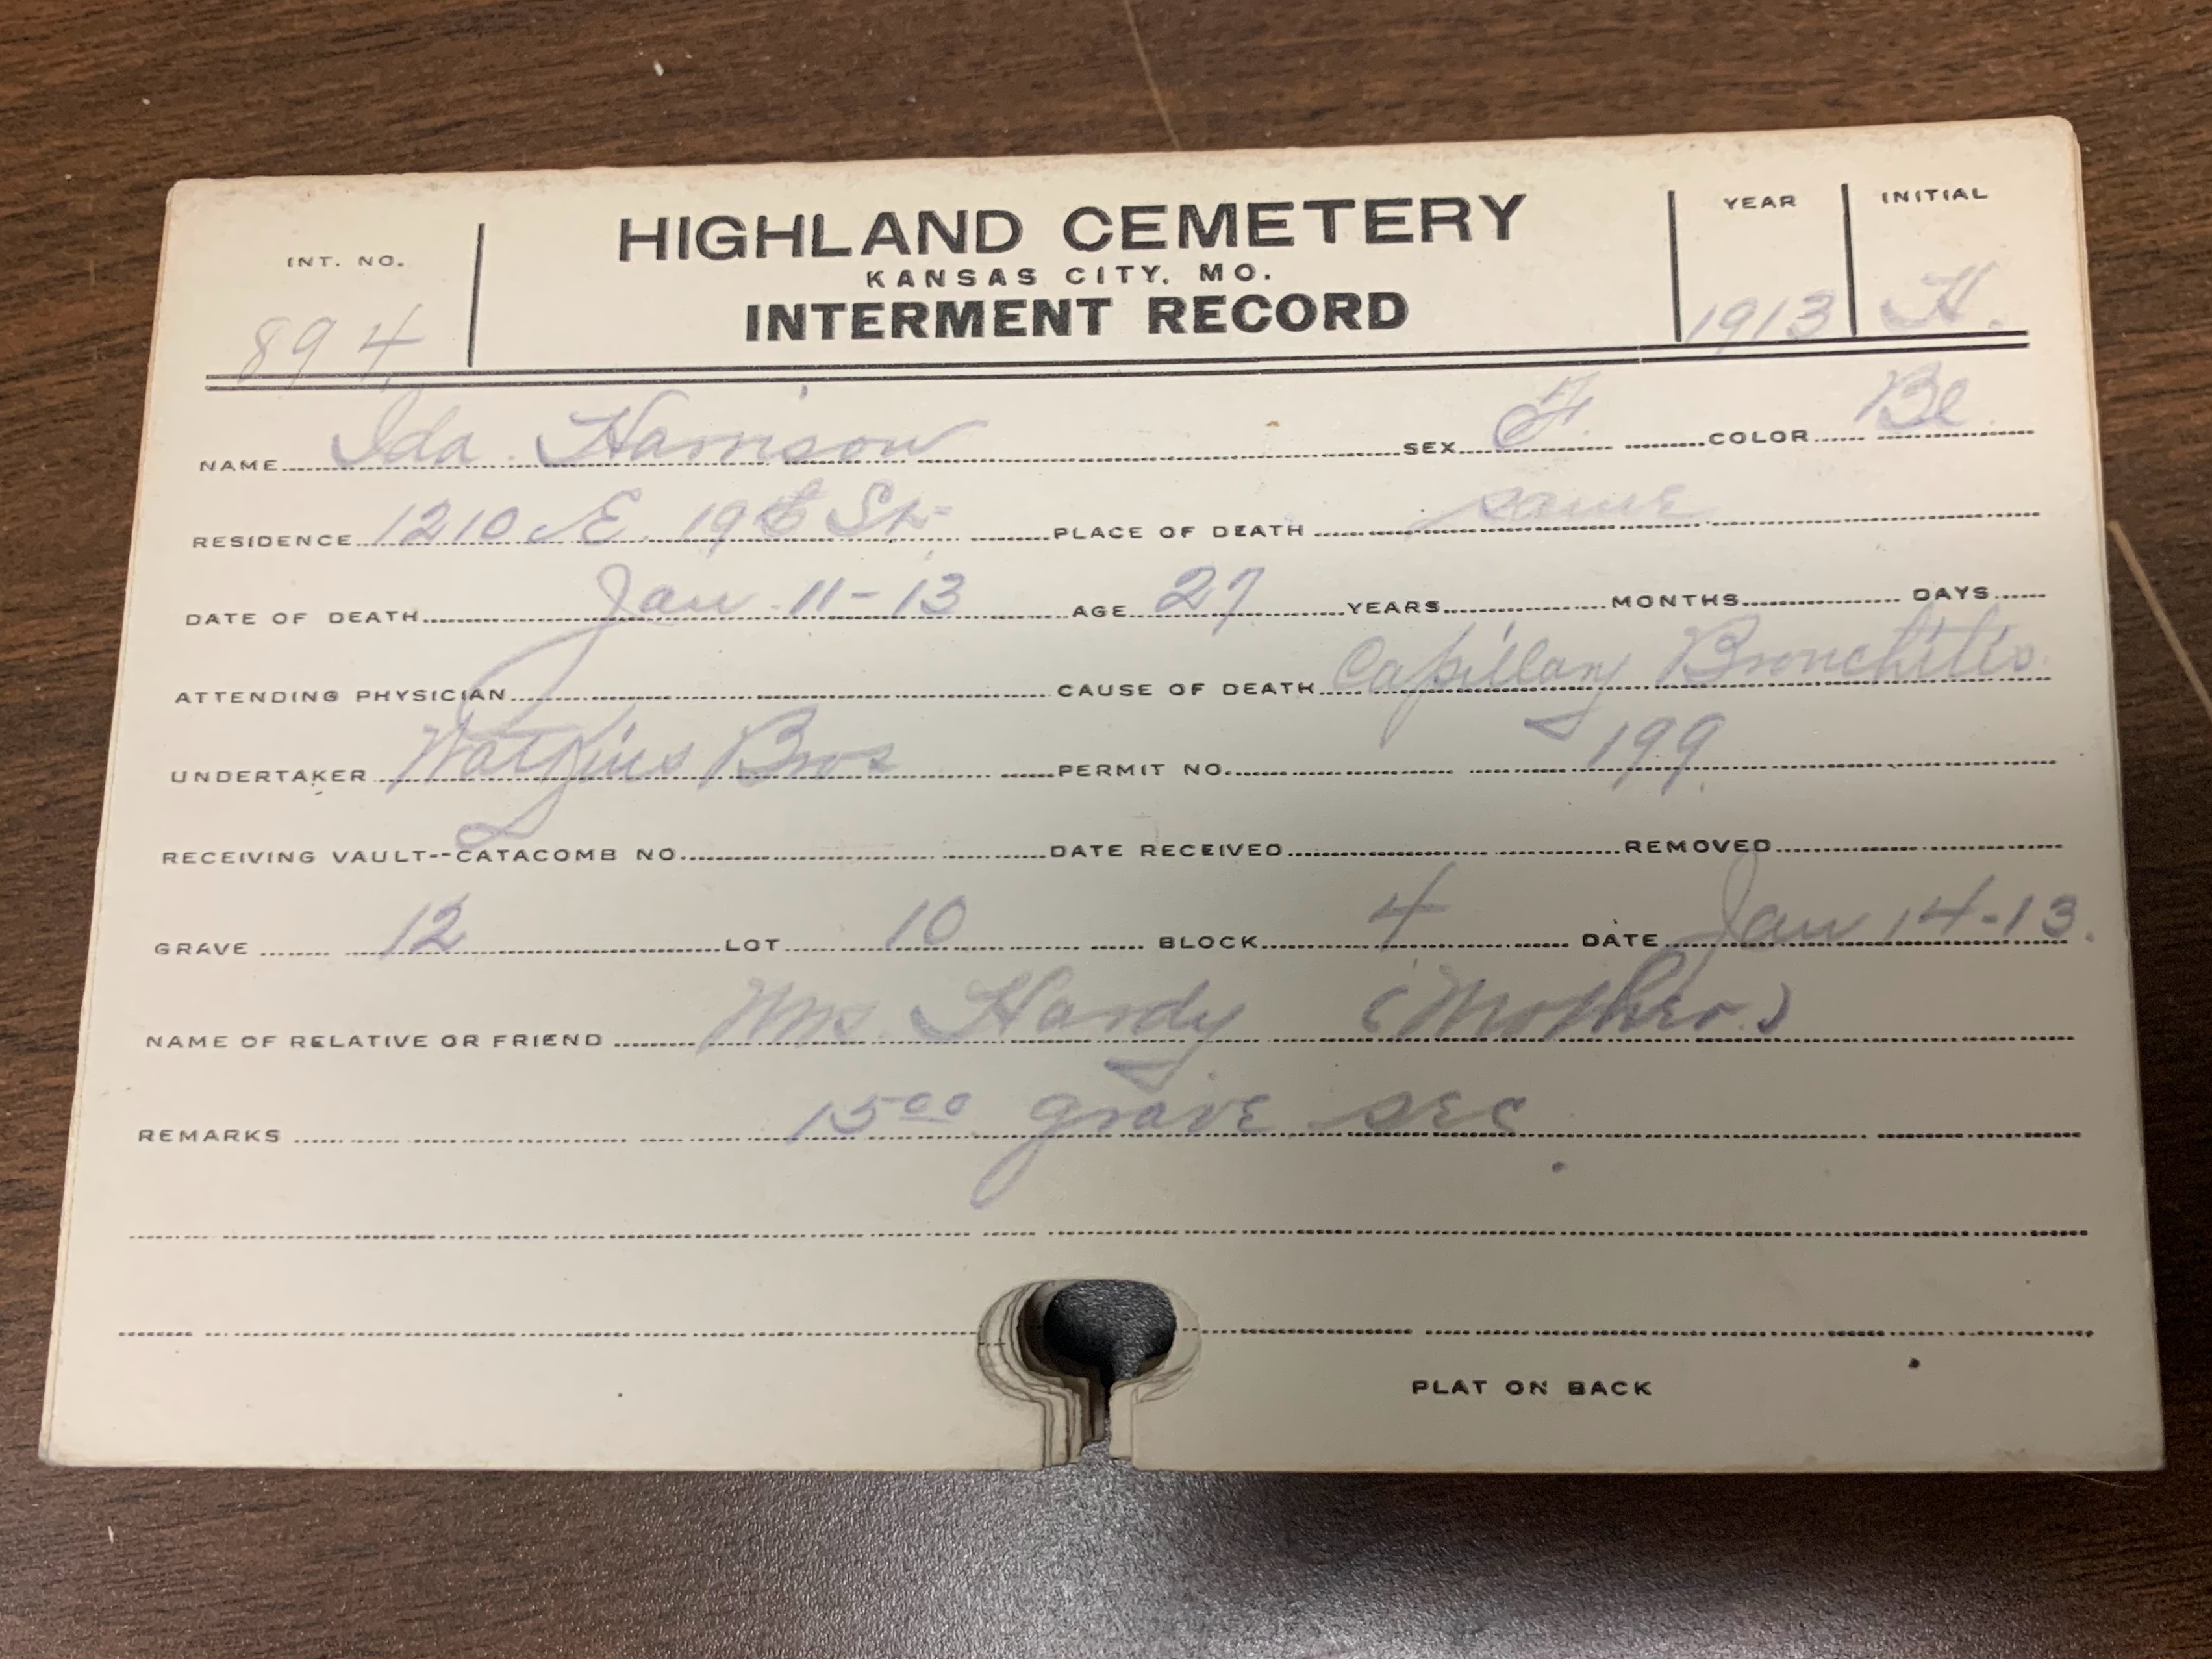 INT. NO. 894
HIGHLAND CEMETERY
KANSAS CITY, MO.
INTERMENT RECORD
YEAR 1913
INITIAL H.
NAME Ida Harrison SEX F. COLOR Bl
RESIDENCE 1210 E. 19th St. PLACE OF DEATH same
DATE OF DEATH Jan 11-13 AGE 27 YEARS MONTHS DAYS
ATTENDING PHYSICIAN CAUSE OF DEATH Capillary Bronchitis
UNDERTAKER Watkins Bros PERMIT NO. 199.
RECEIVING VAULT--CATACOMB NO. DATE RECEIVED REMOVED
GRAVE 12 LOT 10 BLOCK 4 DATE Jan 14-13.
NAME OF RELATIVE OR FRIEND Mrs. Hardy (Mother.)
REMARKS 1500 grave sec
PLAT ON BACK